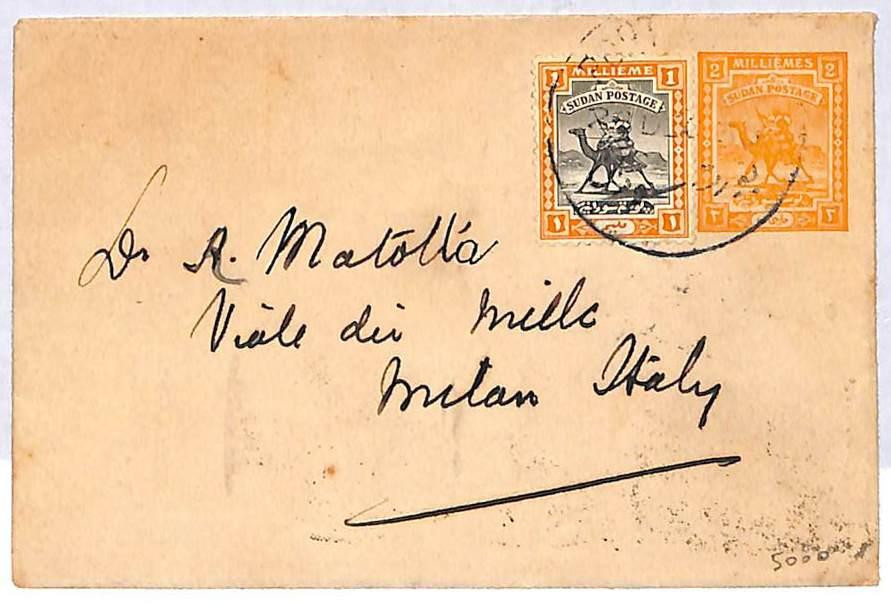 1 MILLIEME 1
SUDAN POSTAGE
١ مليم ١
2 MILLIÈMES 2
SUDAN POSTAGE
٢ ٢
Dr A. Matotta
Viale dei Mille
Milan Italy
5000